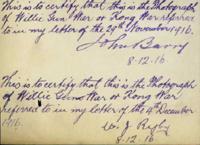 This is to certify that this is the Photograph
of Willie Gun War or Kong War referred
to in my letter of the 29th November 1916.
John Barry
8.12.16
This is to certify that this is the Photograph
of Willie Gun War or Kong War
referred to in my letter of the 4th December
1916.
W. J. Rigby
8.12.16